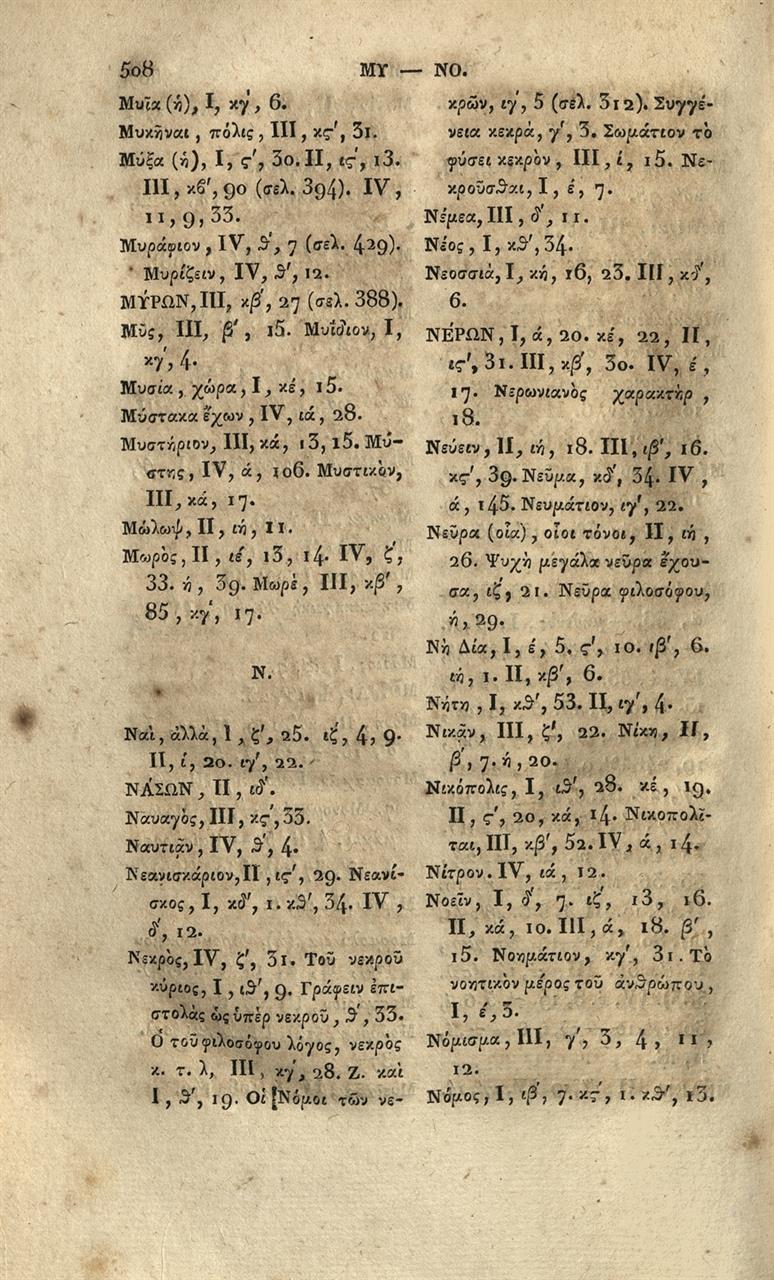 508
ΜΥ — ΝΟ.
Μυῖα (ἡ), I, κγ΄, 6.
Μυκῆναι, πόλις, III, κς΄, 31.
Μύξα (ἡ), I, ς΄, 30. II, ις΄, 13.
III, κβ΄, 90 (σελ. 394). IV,
11, 9, 33.
Μυράφιον, IV, θ΄, 7 (σελ. 429).
Μυρίζειν, IV, θ΄, 12.
ΜΎΡΩΝ, III, κβ΄, 27 (σελ. 388).
Μῦς, III, β΄, 15. Μυΐδιον, I,
κγ΄, 4.
Μυσία, χώρα, I, κέ, 15.
Μύστακα ἔχων, IV, ιά, 28.
Μυστήριον, III, κά, 13, 15. Μύ-
στης, IV, ά, 106. Μυστικὸν,
III, κά, 17.
Μώλωψ, II, ιή, 11.
Μωρὸς, II, ιέ, 13, 14. IV, ζ΄,
33. ή, 39. Μωρὲ, III, κβ΄,
85, κγ΄, 17.
Ν.
Ναὶ, ἀλλὰ, I, ζ΄, 25. ιζ΄, 4, 9.
II, ί, 20. ιγ΄, 22.
ΝΆΣΩΝ, II, ιδ΄.
Ναυαγὸς, III, κς΄, 33.
Ναυτιᾷν, IV, θ΄, 4.
Νεανισκάριον, II, ις΄, 29. Νεανί-
σκος, I, κδ΄, 1. κθ΄, 34. IV,
δ΄, 12.
Νεκρὸς, IV, ζ΄, 31. Τοῦ νεκροῦ
κύριος, I, ιθ΄, 9. Γράφειν ἐπι-
στολὰς ὡς ὑπὲρ νεκροῦ, θ΄, 33.
Ὁ τοῦ φιλοσόφου λόγος, νεκρὸς
κ. τ. λ, III, κγ΄, 28. Ζ. καὶ
I, θ΄, 19. Οἱ [Νόμοι τῶν νε-
κρῶν, ιγ΄, 5 (σελ. 312). Συγγέ-
νεια νεκρὰ, γ΄, 3. Σωμάτιον τὸ
φύσει νεκρὸν, III, ί, 15. Νε-
κροῦσθαι, I, έ, 7.
Νέμεα, III, δ΄, 11.
Νέος, I, κθ΄, 34.
Νεοσσιὰ, I, κή, 16, 23. III, κδ΄,
6.
ΝΈΡΩΝ, I, ά, 20. κέ, 22, II,
ις΄, 31. III, κβ΄, 30. IV, έ,
17. Νερωνιανὸς χαρακτὴρ,
18.
Νεύειν, II, ιή, 18. III, ιβ΄, 16.
κς΄, 39. Νεῦμα, κδ΄, 34. IV,
ά, 145. Νευμάτιον, ιγ΄, 22.
Νεῦρα (οἷα), οἷοι τόνοι, II, ιή,
26. Ψυχὴ μεγάλα νεῦρα ἔχου-
σα, ιζ΄, 21. Νεῦρα φιλοσόφου,
ή, 29.
Νὴ Δία, I, έ, 5. ς΄, 10. ιβ΄, 6.
ιή, 1. II, κβ΄, 6.
Νήτη, I, κθ΄, 53. II, ιγ΄, 4.
Νικᾷν, III, ζ΄, 22. Νίκη, II,
β΄, 7. ή, 20.
Νικόπολις, I, ιθ΄, 28. κέ, 19.
II, ς΄, 20, κά, 14. Νικοπολῖ-
ται, III, κβ΄, 52. IV, ά, 14.
Νίτρον. IV, ιά, 12.
Νοεῖν, I, δ΄, 7. ιζ΄, 13, 16.
II, κά, 10. III, ά, 18. β΄,
15. Νοημάτιον, κγ΄, 31. Τὸ
νοητικὸν μέρος τοῦ ἀνθρώπου,
I, έ, 3.
Νόμισμα, III, γ΄, 3, 4, 11,
12.
Νόμος, I, ιβ΄, 7. κς΄, 1. κθ΄, 13.